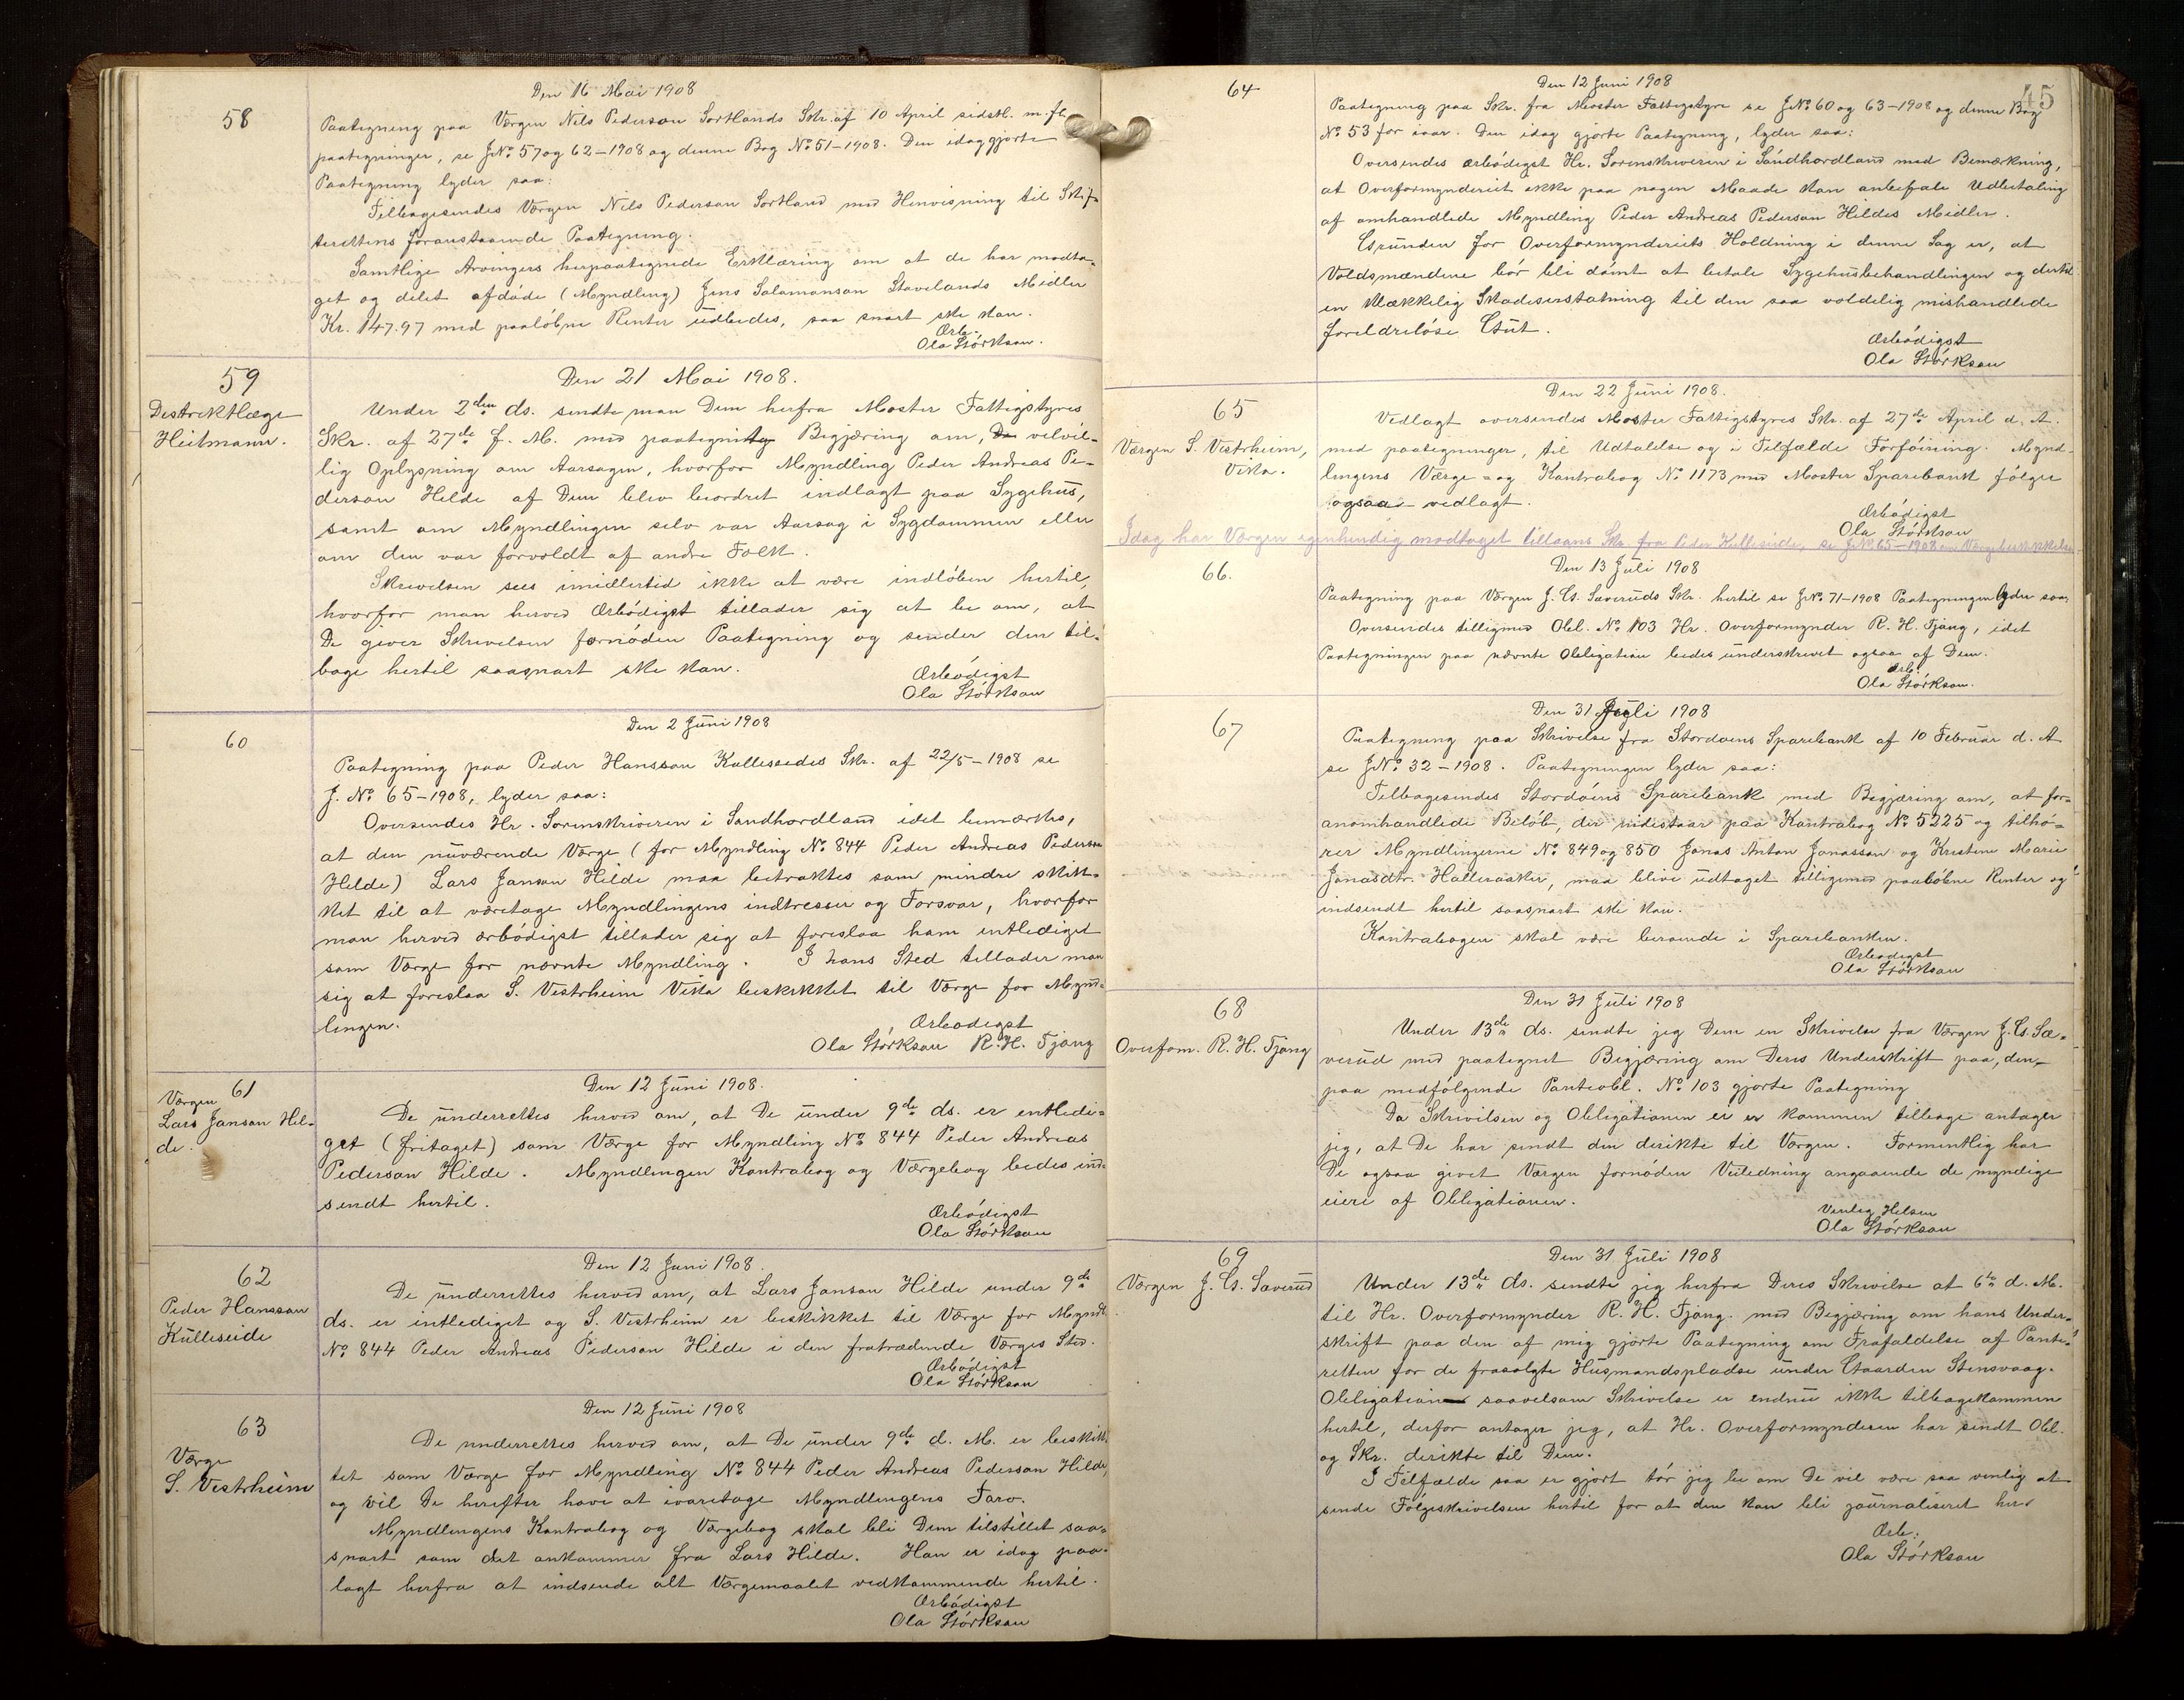 58
Den 16 Mai 1908
Paategning paa Værgen Nils Pederson Sortlands Skr. af 10 April sidstl. m. fl.
paategninger, se J№ 57 og 62-1908 og denne Bog № 51-1908. Den idag gjorte
Paategning lyder saa:
Tilbagesendes Værgen Nils Pederson Sortland med Henvisning til Skif-
terettens foranstaaende Paategning.
Samtlige Arvingers herpaategnede Erklæring om at de har modta-
get og delet afdöde (Myndling) Jens Salamonson Stavelands Midler
Kr. 147.97 med paalöbne Renter udbedes, saa snart ske kan.
Ærb.
Ola Störkson.
59
Destriktlæge
Heitmann.
Den 21 Mai 1908.
Under 2den ds. sendte man Dem herfra Moster Fattigstyres
Skr. af 27de f. M. med paategnet Begjæring om, De velvil-
lig Oplysning om Aarsagen, hvorfor Myndling Peder Andreas Pe-
derson Hilde af Dem blev beordret indlagt paa Sygehus,
samt om Myndlingen selv var Aarsag i Sygdommen eller
om den var forvoldt af andre Folk.
Skrivelsen sees imidlertid ikke at være indlöben hertil,
hvorfor man herved Ærbödigst tillader sig at be om, at
De giver Skrivelsen fornöden Paategning og sender den til-
bage hertil saasnart ske kan.
Ærbödigst
Ola Störkson
60
Den 2 Juni 1908
Paategning paa Peder Hansson Kulleseides Skr. af 22/5-1908 se
J. № 65-1908, lyder saa:
Oversendes Hr. Sorenskriveren i Søndhordland idet bemærkes,
at den nuværende Værge (for Myndling № 844 Peder Andreas Pederson
Hilde) Lars Janson Hilde maa betraktes som mindre skik-
ket til at varetage Myndlingens indtresser og Forsvar, hvorfor
man herved ærbödigst tillader sig at foreslaa ham entlediget
som Værge for nævnte Myndling. I hans Sted tillader man
sig at foreslaa S. Vestrheim Vika beskikket til Værge for Mynd-
lingen.
Ærbödigst
Ola Störkson R. H. Tjong
61
Værgen
Lars Janson Hil-
de.
Den 12 Juni 1908.
De underrettes herved om, at De under 9de ds. er entledi-
get (fritaget) som Værge for Myndling № 844 Peder Andreas
Pederson Hilde. Myndlingen Kontrabog og Værgebog bedes ind-
sendt hertil.
Ærbödigst
Ola Störkson
62
Peder Hansson
Kulleseide
Den 12 Juni 1908.
De underrettes herved om, at Lars Janson Hilde under 9de
ds. er entlediget og S. Vestrheim er beskikket til Værge for Myndl.
№ 844 Peder Andreas Pederson Hilde i den fratrædende Værges Sted.
Ærbödigst
Ola Störkson
63
Værge
S. Vestrheim
Den 12 Juni 1908
De underrettes herved om, at De under 9de d. M. er beskik-
ket som Værge for Myndling № 844 Peder Andreas Pederson Hilde,
og vil De herefter have at ivaretage Myndlingens Tarv.
Myndlingens Kontrabog og Værgebog skal bli Dem tilstillet saa-
snart som det ankommer fra Lars Hilde. Han er idag paa-
lagt herfra at indsende alt Værgemaalet vedkommende hertil.
Ærbödigst
Ola Störkson
45
64
Den 12 Juni 1908
Paategning paa Skr. fra Moster Fattigstyre se J№ 60 og 63-1908 og denne Bog
№ 53 for iaar. Den idag gjorte Paategning, lyder saa:
Oversendes ærbödigst Hr. Sorenskriveren i Söndhordland med Bemærkning,
at Overformynderiet ikke paa nogen Maade kan anbefale Udbetaling
af omhandlede Myndling Peder Andreas Pederson Hildes Midler.
Grunden for Overformynderiets Holdning i denne Sag er, at
Voldsmændene bör bli dömt at betale Sygehusbehandlingen og dertil
en klækkelig Skadeserstatning til den saa voldelig mishandlede
foreldrelöse Gut.
Ærbödigst
Ola Störkson
65
Værgen S. Vestrheim,
Vika.
Den 22 Juni 1908.
Vedlagt oversendes Moster Fattigstyres Skr. af 27de April d. A.
med paategninger, til Udtalelse og i Tilfælde Forföining. Mynd-
lingens Værge- og Kontrabog № 1173 med Moster Sparebank fölger
ogsaa vedlagt.
Ærbödigst
Ola Störkson
Idag har Værgen egenhendig modtaget tillaans Skr. fra Peder Kulleseide, se J№ 65-1908 om Værgebeskikkelse
66.
Den 13 Juli 1908
Paategning paa Værgen J. G. Sæveruds Skr. hertil se J№ 71-1908 Paategningen lyder saa,
Oversendes tilligemed Obl. № 103 Hr. Overformynder R. H. Tjong, idet
Paategningen paa nævnte Obligation bedes underskrevet ogsaa af Dem.
Ærb.
Ola Störkson.
67
Den 31 Juli 1908
Paategning paa Skrivelse fra Stordöens Sparebank af 10 Februar d. A
se J№ 32-1908. Paategningen lyder saa:
Tilbagesendes Stordöens Sparebank med Begjæring om, at for-
anomhandlede Belöb, der indestaar paa Kontrabog № 5225 og tilhö-
rer Myndlingerne № 849 og 850 Jonas Anton Jonasson og Kristine Marie
Jonasdtr. Halleraaker, maa blive udtaget tilligemed paalöbne Renter og
indsendt hertil saasnart ske kan.
Kontrabogen skal være beroende i Sparebanken.
Ærbödigst
Ola Störkson
68
Overfom. R. H. Tjong
Den 31 Juli 1908
Under 13de ds. sendte jeg Dem en Skrivelse fra Værgen J. G. Sæ-
verud med paategnet Begjæring om Deres Underskrift paa, den,
paa medfölgende Panteobl. № 103 gjorte Paategning
Da Skrivelsen og Obligationen er er kommen tilbage antager
jeg, at De har sendt den direkte til Værgen. Formentlig har
De ogsaa givet Værgen fornöden Veiledning angaaende de myndige
eiere af Obligationen.
Venlig Hilsen
Ola Störkson
69
Værgen J. G. Sæverud
Den 31 Juli 1908
Under 13de ds. sendte jeg herfra Deres Skrivelse af 6te d. M.
til Hr. Overformynder R. H. Tjong. med Begjæring om hans Under-
skrift paa den af mig gjorte Paategning om Frafaldelse af Pante-
retten for de frasolgte Husmandspladse under Gaarden Stensvaag.
Obligation saavelsom Skrivelse er endnu ikke tilbagekommen
hertil, derfor antager jeg, at Hr. Overformynderen har sendt Obl.
og Skr. direkte til Dem.
I Tilfælde saa er gjort tör jeg be om De vil være saa venlig at
sende Fölgeskrivelsen hertil for at den kan bli journaliseret her.
Ærb.
Ola Störkson